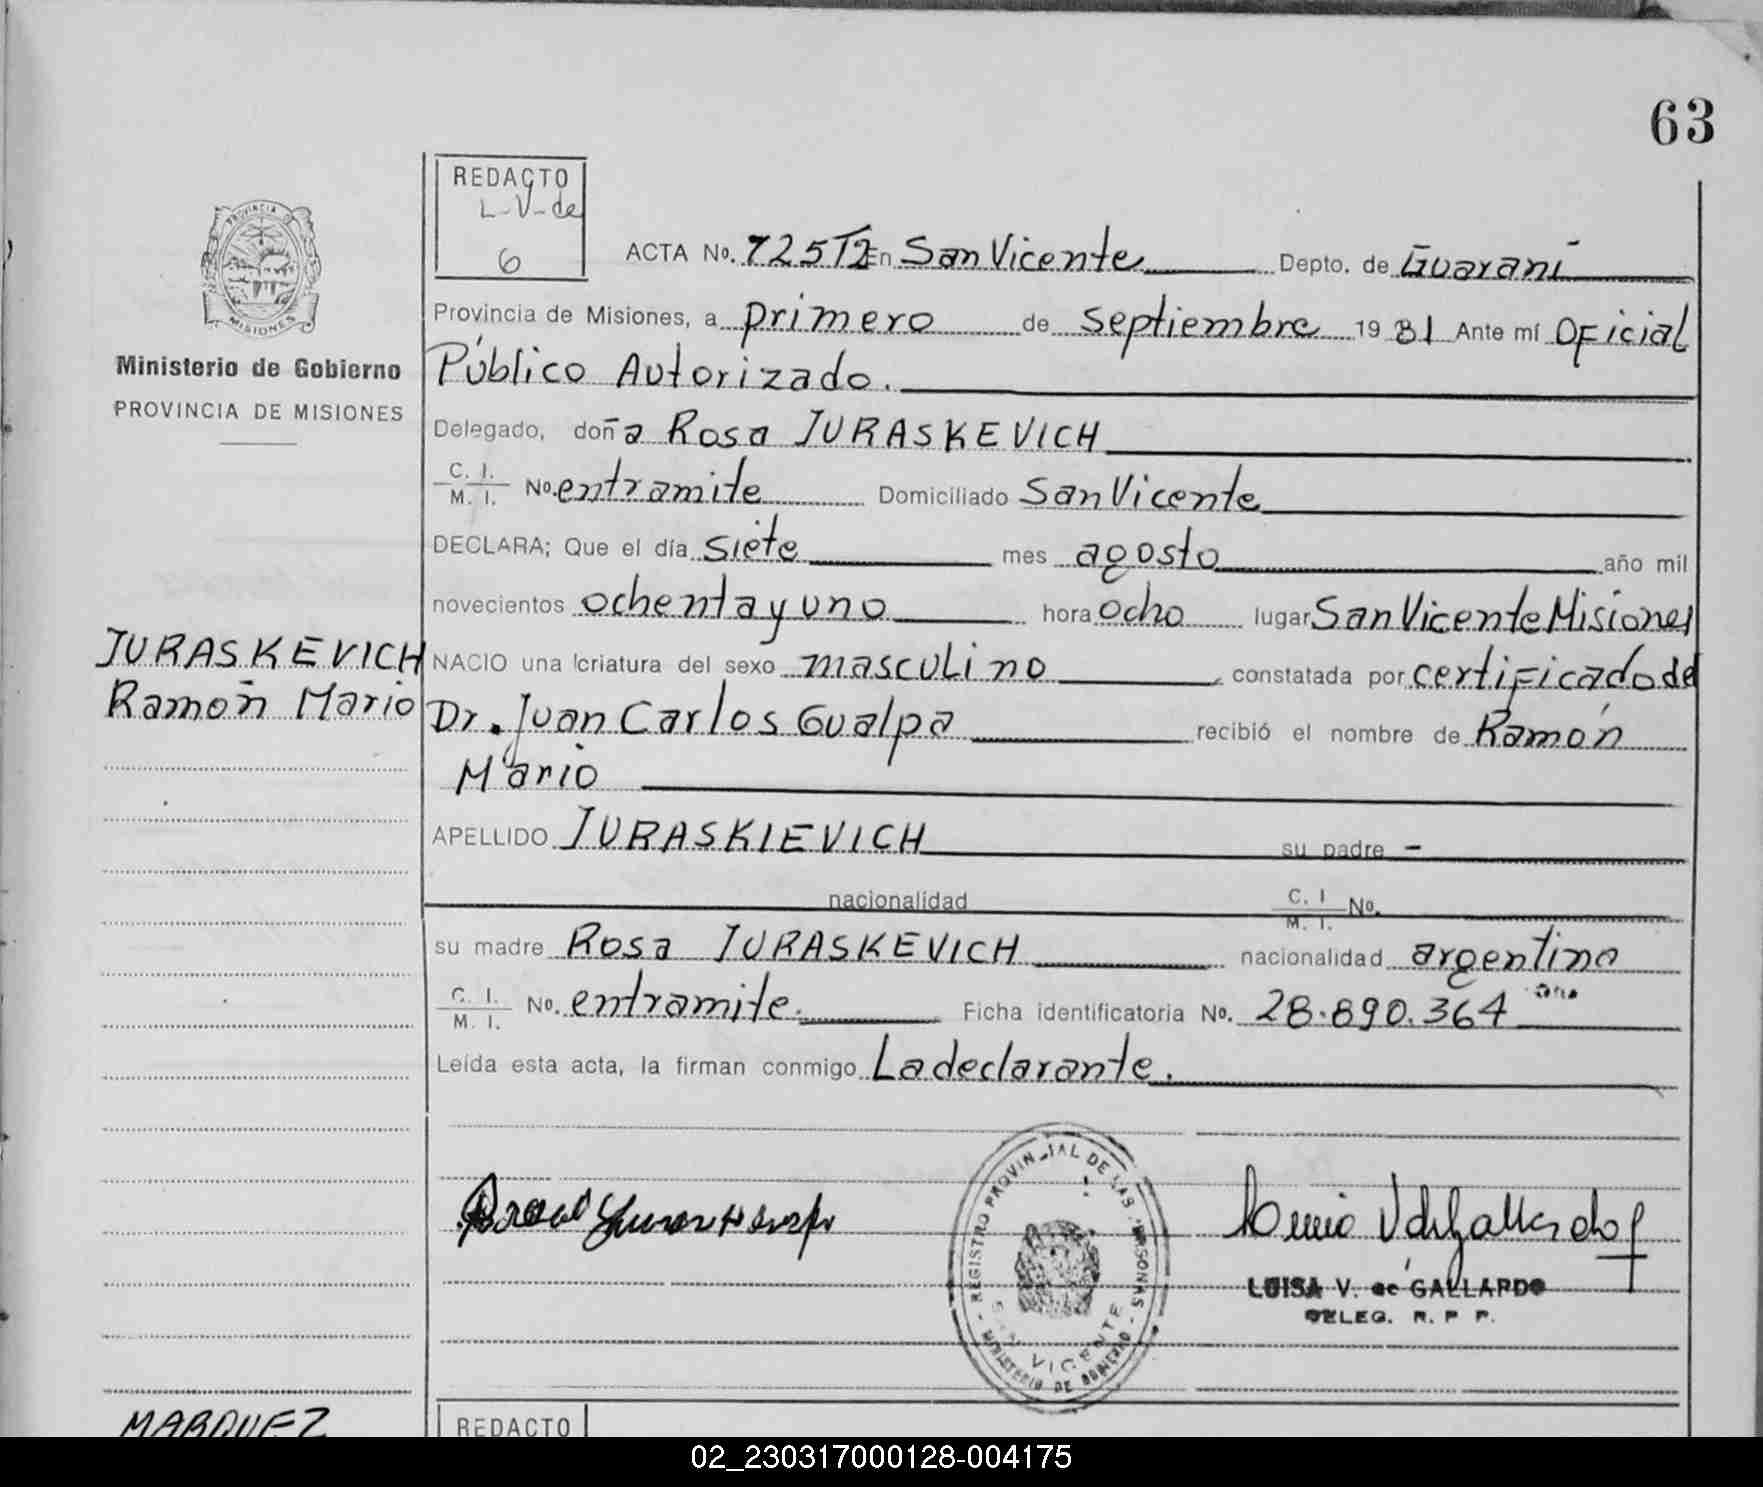 63
REDACTO
L-V-de
6
PROVINCIA D
MISIONES
Ministerio de Gobierno
PROVINCIA DE MISIONES
ACTA No. 725T2 En San Vicente Depto. de Guaraní
Provincia de Misiones, a primero de septiembre 1981 Ante mí Oficial
Público Autorizado.
Delegado, doña Rosa JURASKEVICH
C. I.
M. I. No. entramite Domiciliado San Vicente
DECLARA; Que el día siete mes agosto año mil
novecientos ochenta y uno hora ocho lugar San Vicente Misiones
JURASKEVICH
Ramón Mario
NACIO una criatura del sexo masculino constatada por certificado del
Dr. Juan Carlos Gualpa recibió el nombre de Ramón
Mario
APELLIDO JURASKIEVICH su padre -
nacionalidad C. I. M. I. No.
su madre Rosa JURASKEVICH nacionalidad argentina
C. I.
M. I. No. entramite. Ficha identificatoria No. 28.890.364
Leída esta acta, la firman conmigo La declarante.
REGISTRO PROVINCIAL DE LAS PERSONAS
SAN VICENTE
MINISTERIO DE GOBIERNO
LUISA V. de GALLARDO
DELEG. R. P. P.
MARQUEZ
REDACTO
02_230317000128-004175